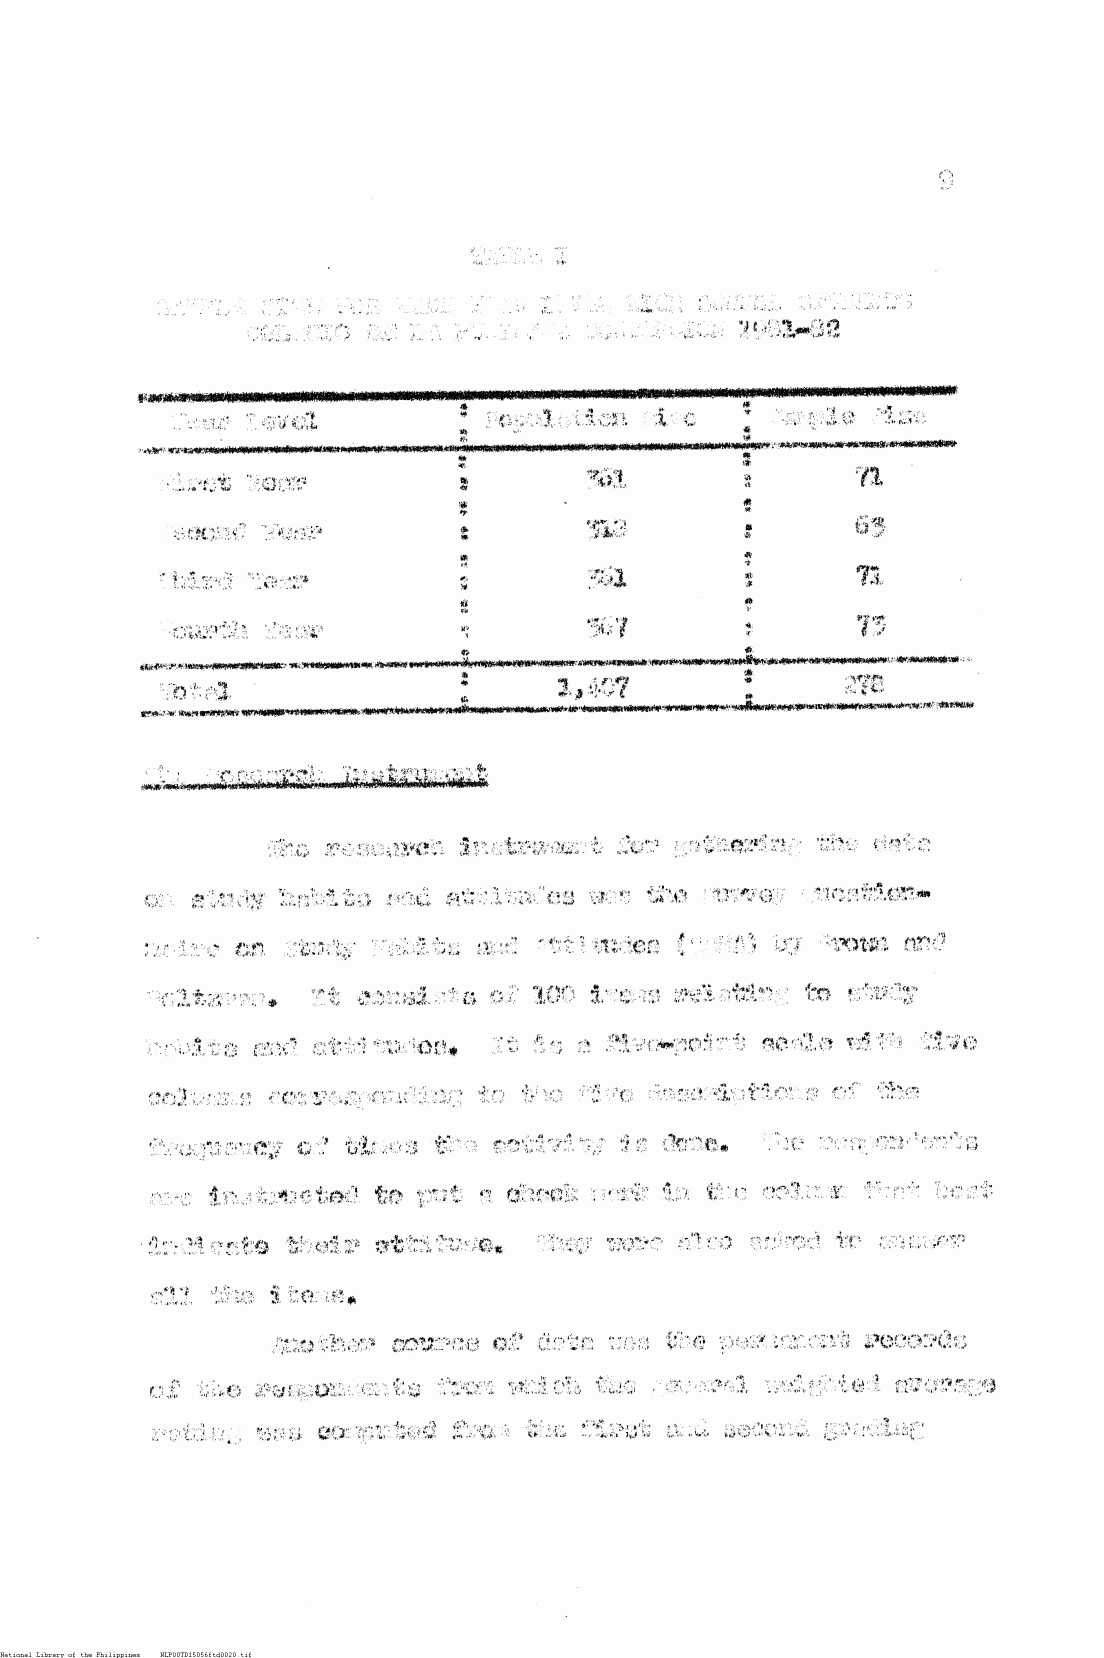 9
TABLE I
SAMPLE SIZE FOR EACH YEAR LEVEL HIGH SCHOOL STUDENTS
COLEGIO DE LA CONCEPCION 1981-82
Year Level : Population Size : Sample Size
First Year : 361 : 71
Second Year : 318 : 63
Third Year : 361 : 71
Fourth Year : 367 : 73
Total : 1,407 : 278
The Research Instrument
The research instrument for gathering the data
on study habits and attitudes was the survey question-
naire on Study Habits and Attitudes (SSHA) by Brown and
Holtzman. It consists of 100 items relating to study
habits and attitudes. It is a five-point scale with five
columns corresponding to the five descriptions of the
frequency of times the activity is done. The respondents
are instructed to put a check mark in the column that best
indicate their attitude. They were also asked to answer
all the items.
Another source of data was the permanent records
of the respondents from which the general weighted average
rating was computed from the first and second grading
National Library of the Philippines NLP00TD15056ftd0020.tif